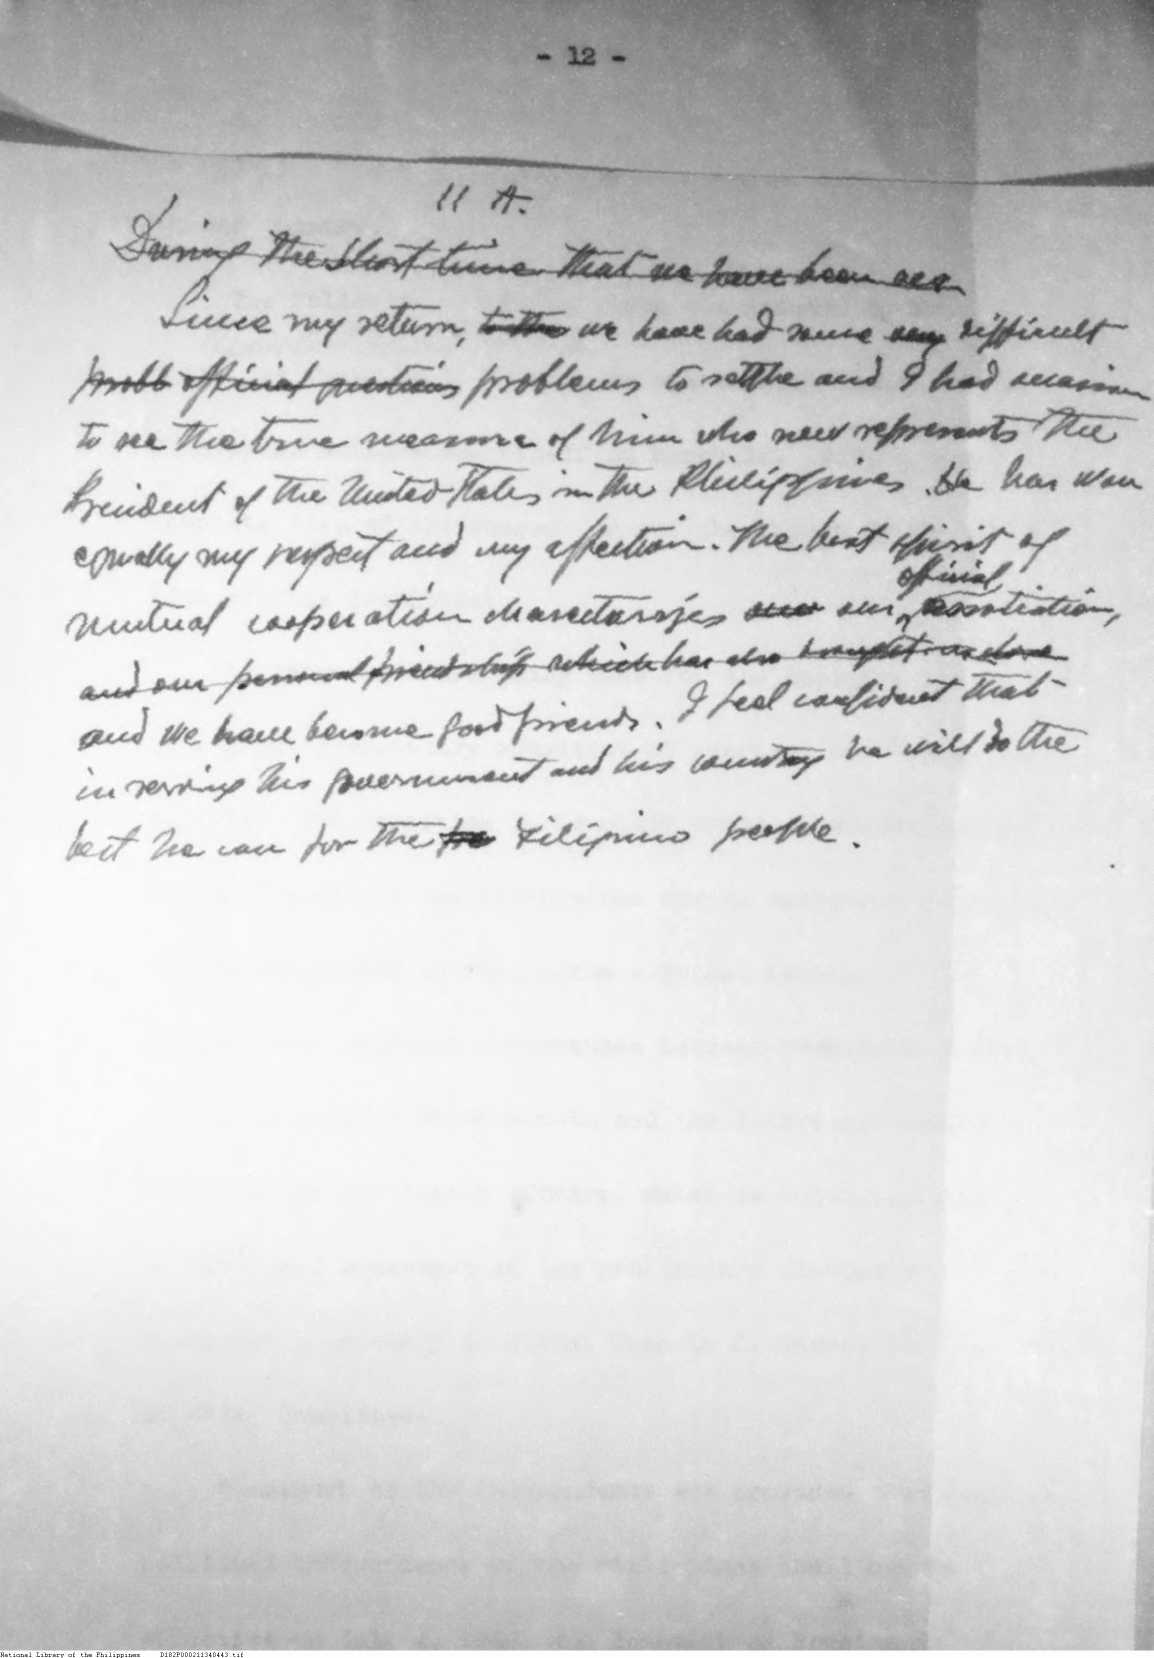 - 12 -
11 A.
During the short time that we have been ass
Since my return, to the we have had some very difficult
probl official questions problems to settle and I had occasion
to see the true measure of him who now represents the
President of the United States in the Philippines. He has won
equally my respect and my affection. The best spirit of
official
mutual cooperation characterizes our our association,
and our personal friendship which has also brought us close
and we have become good friends. I feel confident that
in serving his government and his country he will do the
best he can for the Filipino people.
National Library of the Philippines D182P000211340443.tif